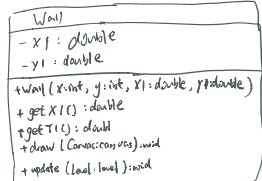 Wall
- X1 : double
- y1 : double
+ Wall (x:int, y:int, X1:double, y1:double)
+ get X1() : double
+ get Y1() : doubl
+ draw (Canvas:canvas):void
+ update (Level:level):void